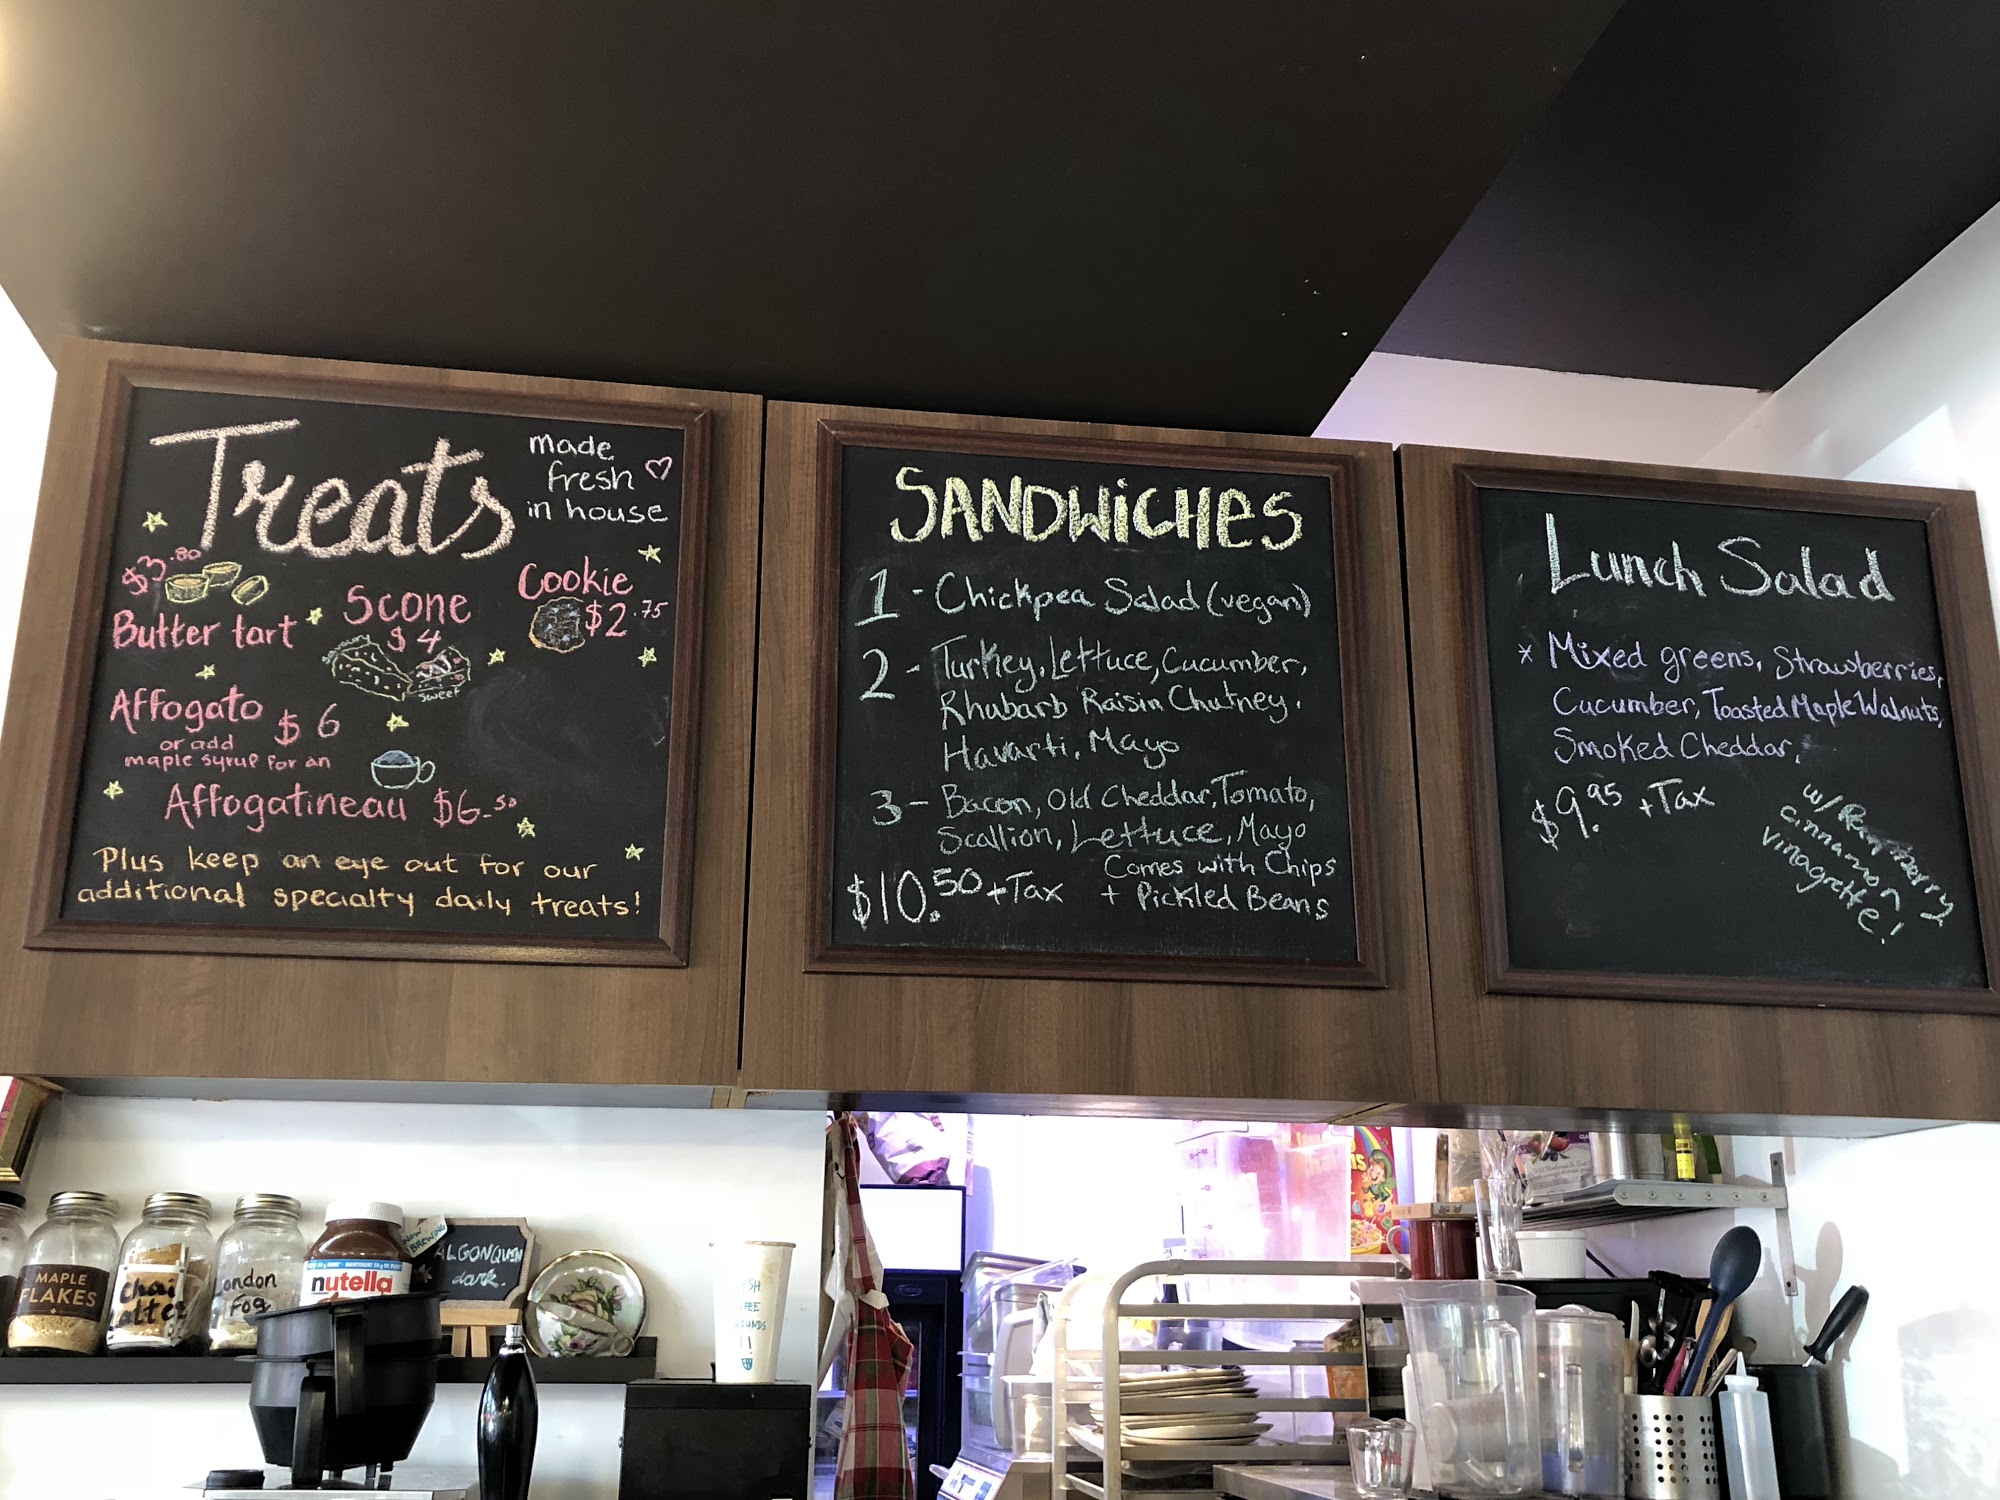 Treats
made
fresh
in house
$3.80
Butter tart
Scone
$4
sweet
Cookie
$2.75
Affogato $6
or add
maple syrup for an
Affogatineau $6.50
Plus keep an eye out for our
additional specialty daily treats!
SANDWiCHes
1 - Chickpea Salad (vegan)
2 - Turkey, Lettuce, Cucumber,
Rhubarb Raisin Chutney,
Havarti, Mayo
3 - Bacon, Old Cheddar, Tomato,
Scallion, Lettuce, Mayo
Comes with Chips
+ Pickled Beans
$10.50 + Tax
Lunch Salad
* Mixed greens, Strawberries,
Cucumber, Toasted Maple Walnuts,
Smoked Cheddar,
$9.95 + Tax
w/
cinnamon
vinagrette!
MAPLE
FLAKES
Chai
London
Fog
nutella
NOW
BREWING
ALGONQUIN
dark.